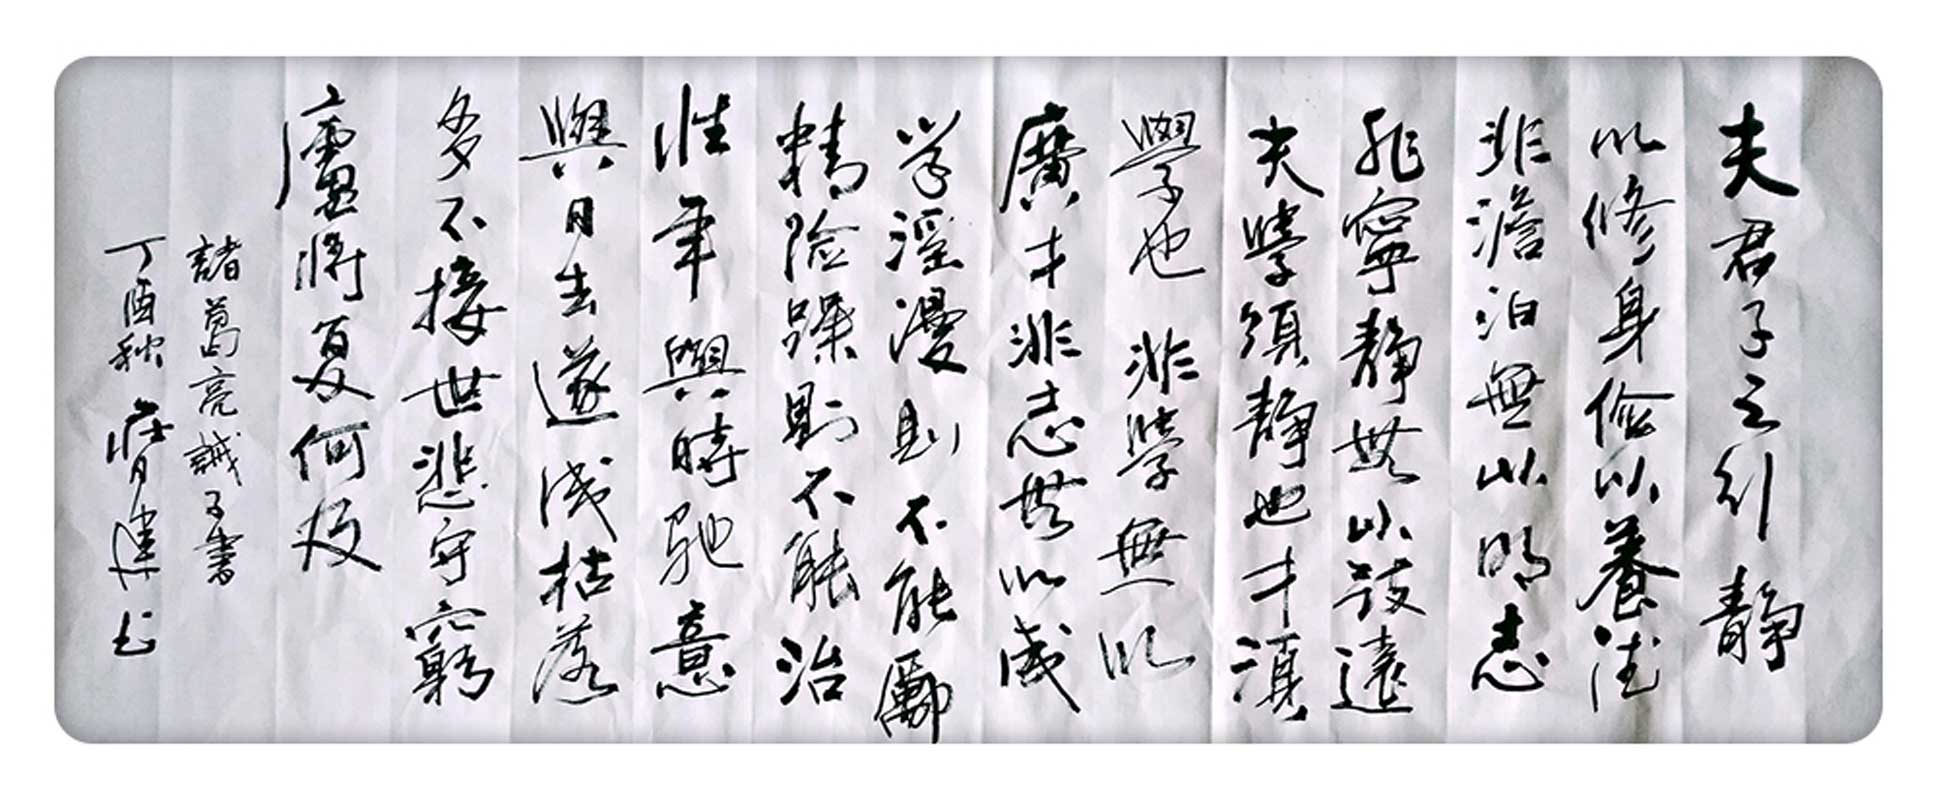 夫君子之行靜
以修身儉以養德
非澹泊無以明志
非寧靜無以致遠
夫學須靜也才須
學也非學無以
廣才非志無以成
学淫漫則不能勵
精险躁則不能治
性年與時馳意
與日去遂成枯落
多不接世悲守窮
廬将复何及
諸葛亮誡子書
丁酉秋